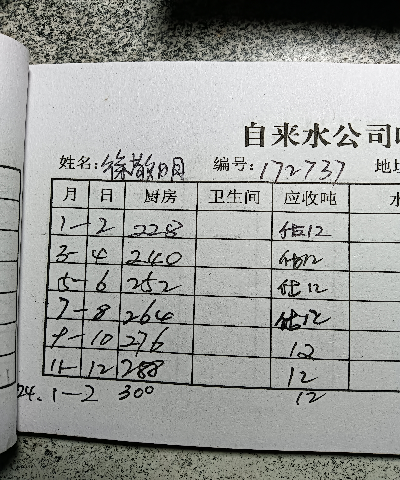 自来水公司
姓名:徐 明 编号:172737 地
月 日 厨房 卫生间 应收吨 水
1-2 228 估12
3-4 240 估12
5-6 252 估12
7-8 264 估12
9-10 276 12
11-12 288 12
24.1-2 300 12